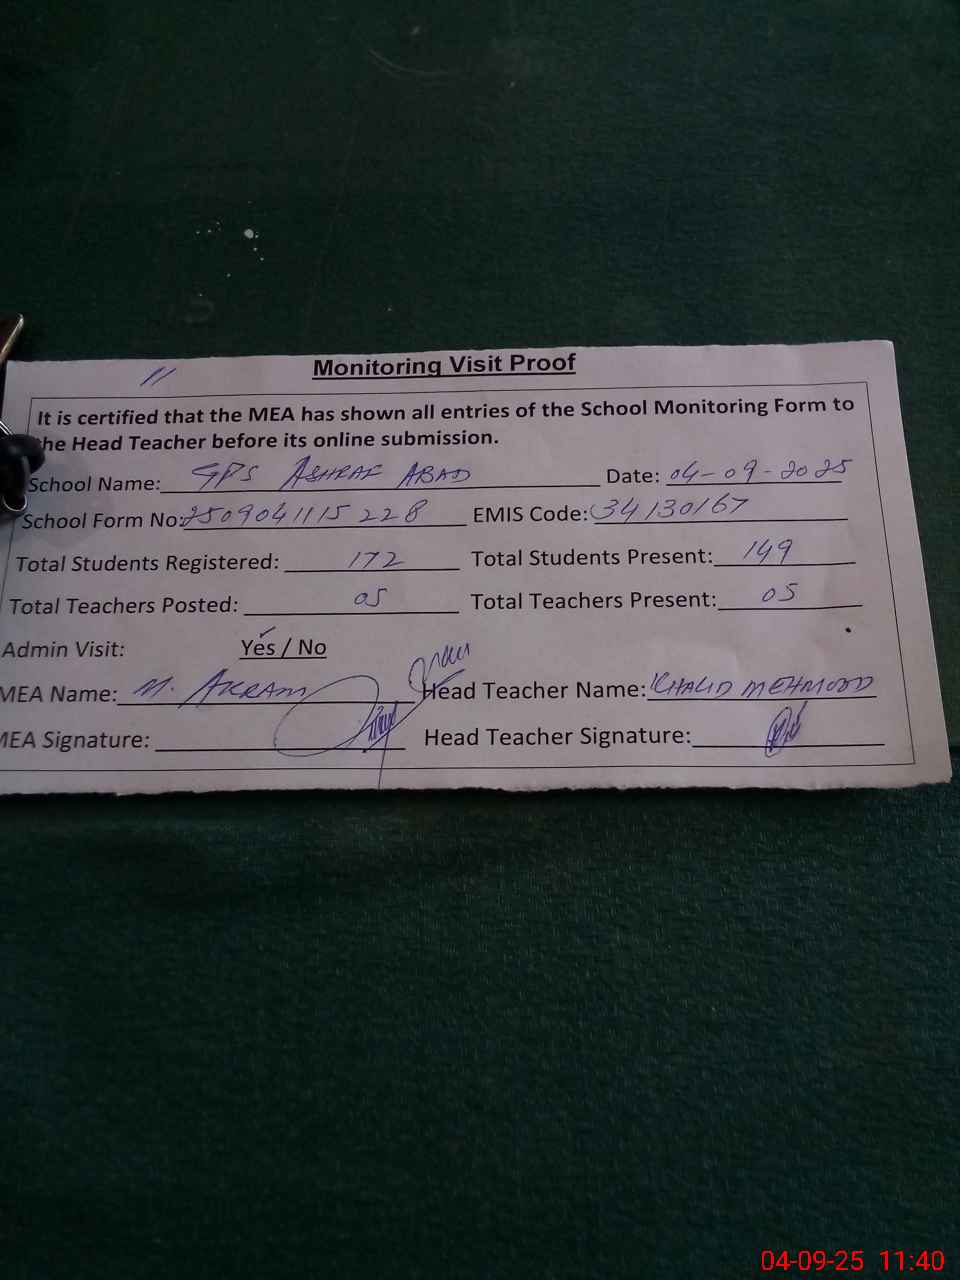 Monitoring Visit Proof
11
It is certified that the MEA has shown all entries of the School Monitoring Form to
the Head Teacher before its online submission.
School Name: GPS ASHRAF ABAD Date: 04-09-2025
School Form No: 2509041115228 EMIS Code: 34130167
Total Students Registered: 172 Total Students Present: 149
Total Teachers Posted: 05 Total Teachers Present: 05
Admin Visit: Yes / No
MEA Name: M. AKRAM Head Teacher Name: KHALID MEHMOOD
MEA Signature: Head Teacher Signature:
04-09-25 11:40